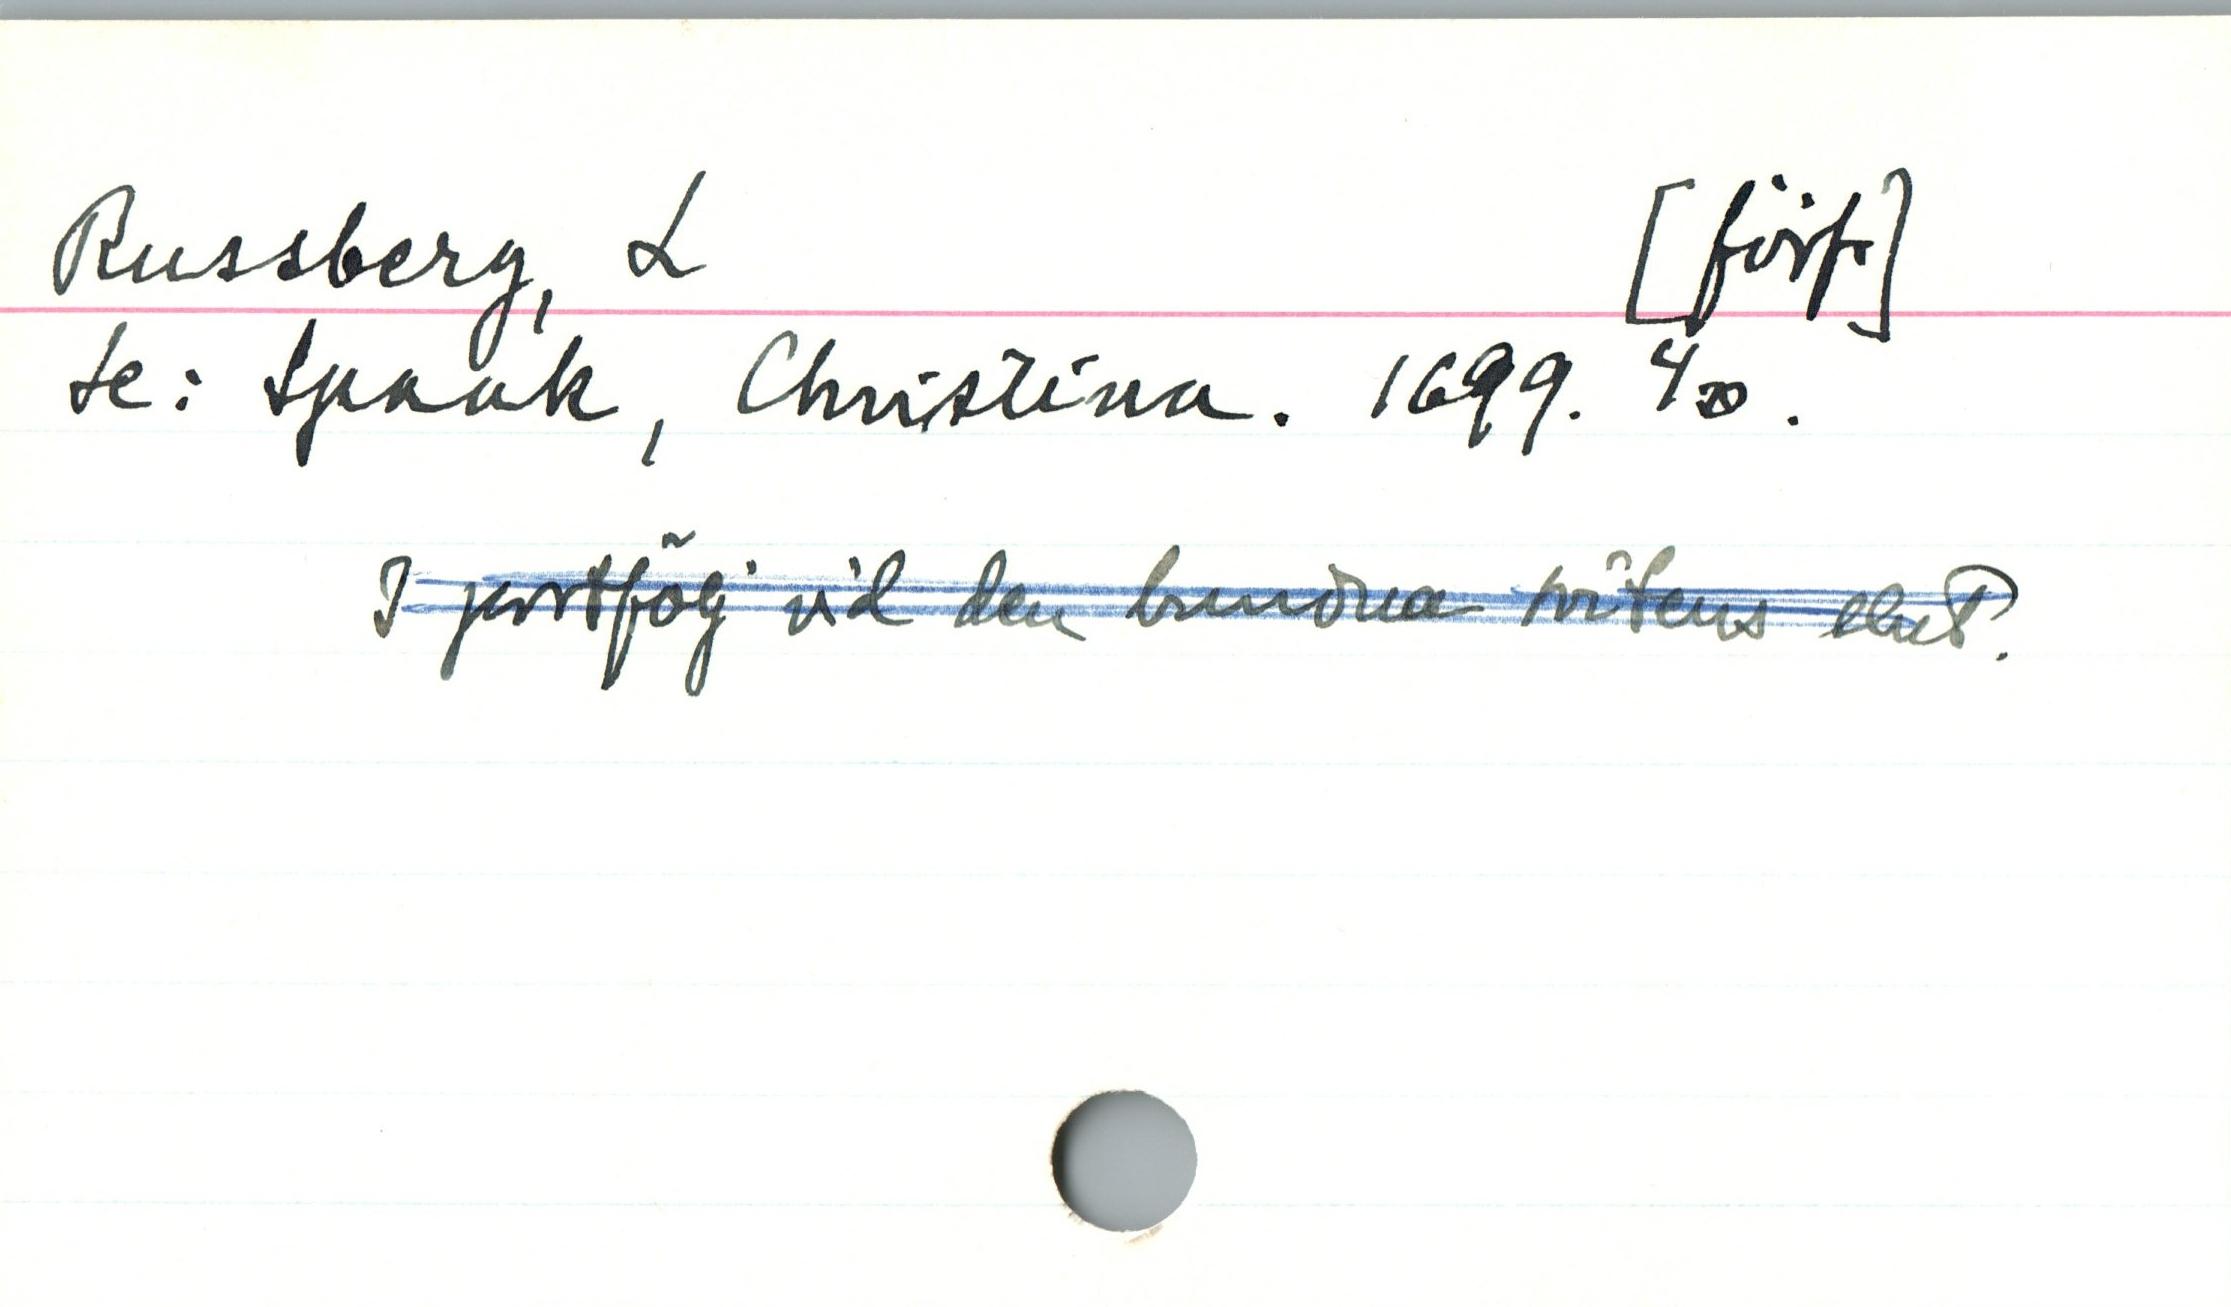 Russberg, L [förf.]
se: Spaak, Christina. 1699. 4/20.
I portfölj vid den bundna svitens slut.